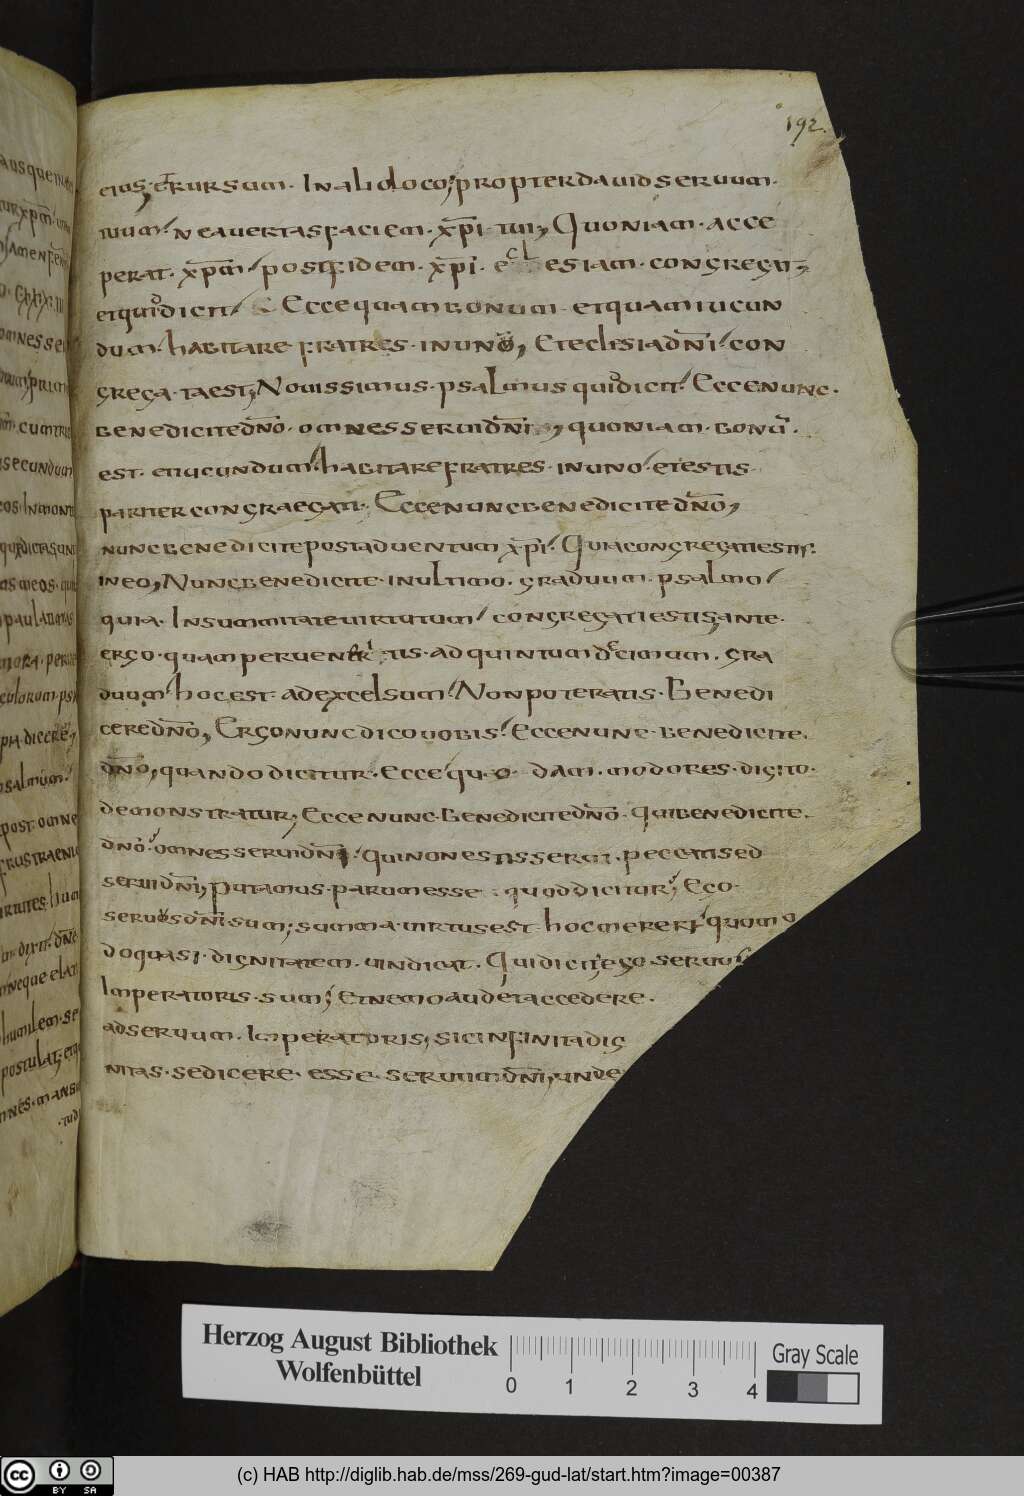 192.
eius; et rursum. In alio loco; propter dauid seruum.
tuum / ne auertas faciem. xp̄i tui; Quoniam. acce
perat. xp̄m / post fidem. xp̄i. ecclesiam. congregat;
et quid dicit / Ecce quam bonum et quam iucun
dum. habitare fratres. in uno, Et eclesia dn̄i / con
grega. ta est; Nouissimus. psalmus quid dicit. Ecce nunc.
benedicite dn̄o. omnes serui dn̄i; quoniam. bonū.
est. et iucundum. habitare fratres. in uno. et estis
pariter congraegati. Ecce nunc benedicite dn̄o,
nunc benedicite post aduentum xp̄i. Quia congregati estis.
in eo, Nunc benedicite. in ultimo. graduum. psalmo /
quia. In summitate uirtutum / congregati estis, ante.
ergo. quam perueniretis. ad quintum decimum. gra
duum / hoc est ad excelsum / Non poteratis. Benedi
cere dn̄o, Ergo nunc dico uobis. Ecce nunc. benedicite.
dn̄o, quando dicitur. Ecce quo dam. modo res. digito.
demonstratur; Ecce nunc. Benedicite dn̄o. Qui benedicite.
dn̄o. omnes serui dn̄i. qui non estis serui. peccati sed
serui dn̄i, Putamus. parum esse quod dicitur, Ego.
seruus dn̄i. sum; summa. uirtus est hoc mereri quomo
do quasi. dignitatem. uindicat. Qui dicit ego. seruus
Imperatoris. sum; Et nemo audet accedere.
ad seruum. Imperatoris, sic infinita dig
nitas. se dicere. esse. seruum dn̄i, unde
Herzog August Bibliothek
Wolfenbüttel
0 1 2 3 4
Gray Scale
cc BY SA
(c) HAB http://diglib.hab.de/mss/269-gud-lat/start.htm?image=00387